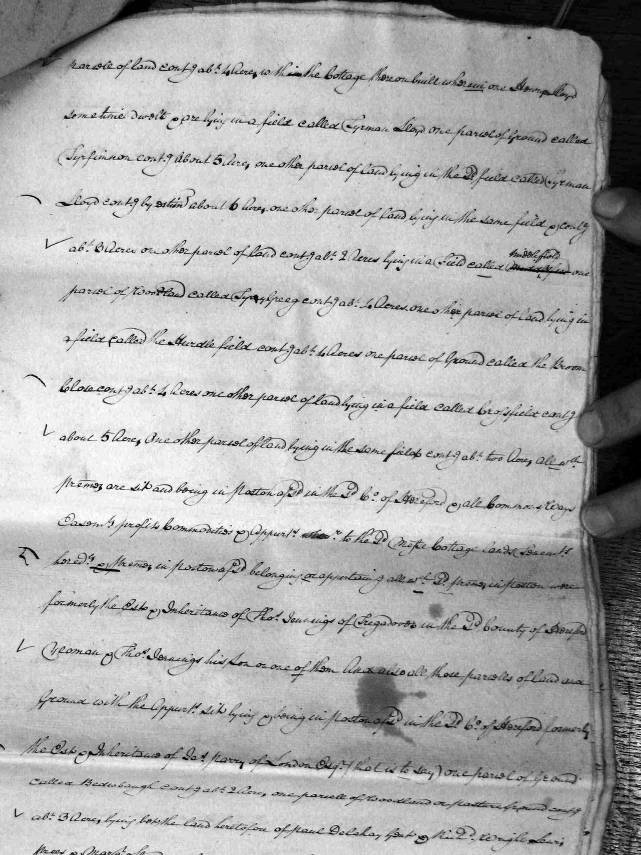 parcele of land cont9 abt. 4 Acre, with in the Cottage thereon built wherein one Henry Lloyd
sometime dwelt & are lying in a field called Tyrman Lloyd one parcel of Ground called
cont9 about 5 Acre, one other parcel of land lying in the sd field called Tyrman
Lloyd cont9 by estim about 6 Acre, one other parcel of land lying in the same field & cont9
abt. 3 Acres one other parcel of land cont9 abt. 2 Acres lying in a Field called middlefield one
parcel of Woodland called cont9 abt. 4 Acres one other parcel of land lying in
a field called the Hurdle field cont9 abt. 4 Acres one parcel of Ground called the Broom
Close cont9 abt. 4 Acres one other parcel of land lying in a field called Crossfield cont9
about 5 Acre, One other parcel of land lying in the same field cont9 abt. two Acre, all wch.
premes are sit and being in afsd in the sd Co. of Hereford & all Commons Ways
Easemts profits Commodities & Appurts to the sd Messe Cottage lands Tenemts
heredts & Premes in afsd belonging or appertaining all wch. sd premes in were
formerly the Esto & Inheritance of Thos. Jennings of in the sd County of Hereford
Yeoman & Thos. Jennings his Son or one of them And also all those parcels of land and
Ground with the Appurts sit lying & being in afsd in the sd Co. of Hereford formerly
the Esto & Inheritance of Jas. Parry of London Esqr. (that is to say) one parcel of Ground
called cont9 abt. 2 Acre, one parcele of Woodland or pasture ground cont9
abt. 3 Acre, lying betw the land heretofore of Paul Delahay Gent &